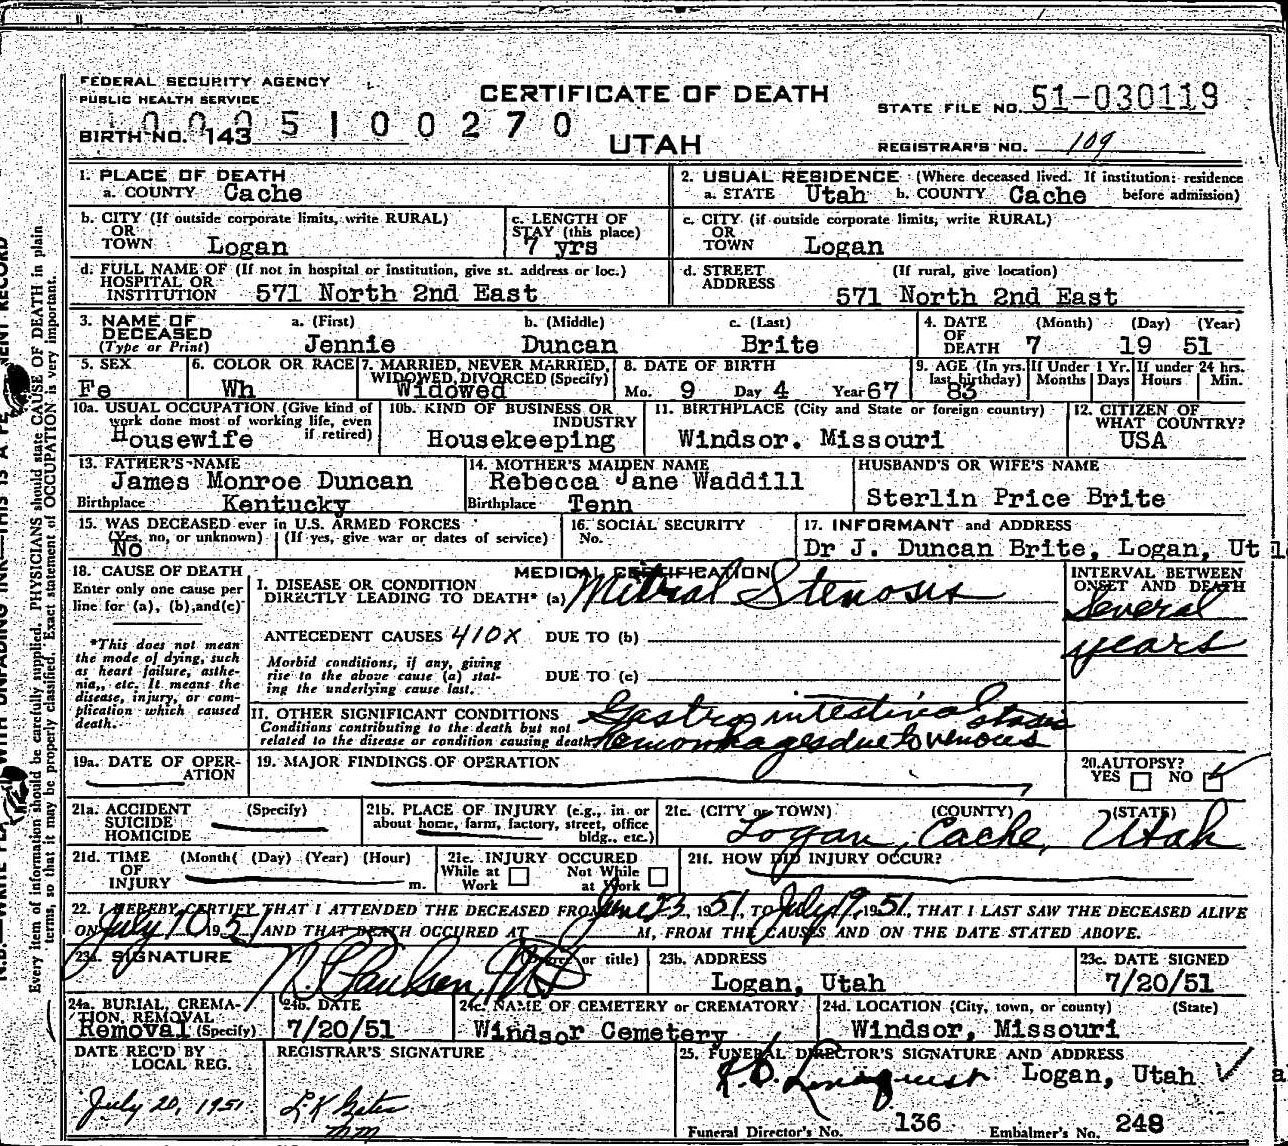 FEDERAL SECURITY AGENCY
PUBLIC HEALTH SERVICE
CERTIFICATE OF DEATH
UTAH
STATE FILE NO. 51-030119
REGISTRAR'S NO. 109
BIRTH NO. 143
1000510 0270
1. PLACE OF DEATH
a. COUNTY Cache
2. USUAL RESIDENCE (Where deceased lived. If institution: residence before admission)
a. STATE Utah b. COUNTY Cache
b. CITY (If outside corporate limits, write RURAL)
OR
TOWN Logan
c. LENGTH OF
STAY (this place)
7 yrs
c. CITY (if outside corporate limits, write RURAL)
OR
TOWN Logan
d. FULL NAME OF (If not in hospital or institution, give st. address or loc.)
HOSPITAL OR
INSTITUTION 571 North 2nd East
d. STREET (If rural, give location)
ADDRESS
571 North 2nd East
3. NAME OF a. (First) b. (Middle) c. (Last)
DECEASED
(Type or Print) Jennie Duncan Brite
4. DATE (Month) (Day) (Year)
OF
DEATH 7 19 51
5. SEX
Fe
6. COLOR OR RACE
Wh
7. MARRIED, NEVER MARRIED,
WIDOWED, DIVORCED (Specify)
Widowed
8. DATE OF BIRTH
Mo. 9 Day 4 Year 67
9. AGE (In yrs. last birthday)
83
If Under 1 Yr.
Months Days
If under 24 hrs.
Hours Min.
10a. USUAL OCCUPATION (Give kind of
work done most of working life, even
if retired)
Housewife
10b. KIND OF BUSINESS OR
INDUSTRY
Housekeeping
11. BIRTHPLACE (City and State or foreign country)
Windsor. Missouri
12. CITIZEN OF
WHAT COUNTRY?
USA
13. FATHER'S NAME
James Monroe Duncan
Birthplace Kentucky
14. MOTHER'S MAIDEN NAME
Rebecca Jane Waddill
Birthplace Tenn
HUSBAND'S OR WIFE'S NAME
Sterlin Price Brite
15. WAS DECEASED ever in U.S. ARMED FORCES
(Yes, no, or unknown) (If yes, give war or dates of service)
No
16. SOCIAL SECURITY
No.
17. INFORMANT and ADDRESS
Dr J. Duncan Brite, Logan, Ut
18. CAUSE OF DEATH
Enter only one cause per
line for (a), (b), and (c)
*This does not mean
the mode of dying, such
as heart failure, asthe-
nia,, etc. It means the
disease, injury, or com-
plication which caused
death.
MEDICAL CERTIFICATION
I. DISEASE OR CONDITION
DIRECTLY LEADING TO DEATH* (a) Mitral Stenosis
ANTECEDENT CAUSES 410X DUE TO (b)
Morbid conditions, if any, giving
rise to the above cause (a) stat-
ing the underlying cause last.
DUE TO (c)
II. OTHER SIGNIFICANT CONDITIONS
Conditions contributing to the death but not
related to the disease or condition causing death
Gastrointestinal
hemorrhages due to venous stasis
INTERVAL BETWEEN
ONSET AND DEATH
Several
years
19a. DATE OF OPER-
ATION
19. MAJOR FINDINGS OF OPERATION
20. AUTOPSY?
YES NO
21a. ACCIDENT (Specify)
SUICIDE
HOMICIDE
21b. PLACE OF INJURY (e.g., in or
about home, farm, factory, street, office
bldg., etc.)
21c. (CITY or TOWN) (COUNTY) (STATE)
Logan, Cache, Utah
21d. TIME (Month) (Day) (Year) (Hour)
OF
INJURY m.
21e. INJURY OCCURED
While at Work Not While at Work
21f. HOW DID INJURY OCCUR?
22. I HEREBY CERTIFY THAT I ATTENDED THE DECEASED FROM June 23, 1951, TO July 19, 1951, THAT I LAST SAW THE DECEASED ALIVE
ON July 10 1951 AND THAT DEATH OCCURED AT M, FROM THE CAUSES AND ON THE DATE STATED ABOVE.
23a. SIGNATURE (Degree or title)
Paulsen, MD
23b. ADDRESS
Logan, Utah
23c. DATE SIGNED
7/20/51
24a. BURIAL, CREMA-
TION, REMOVAL
Removal (Specify)
24b. DATE
7/20/51
24c. NAME OF CEMETERY or CREMATORY
Windsor Cemetery
24d. LOCATION (City, town, or county) (State)
Windsor, Missouri
DATE REC'D BY
LOCAL REG.
July 20, 1951
REGISTRAR'S SIGNATURE
25. FUNERAL DIRECTOR'S SIGNATURE AND ADDRESS
Lindquist Logan, Utah
Funeral Director's No. 136 Embalmer's No. 248
Every item of information should be carefully supplied. PHYSICIANS should state CAUSE OF DEATH in plain
terms, so that it may be properly classified. Exact statement of OCCUPATION is very important.